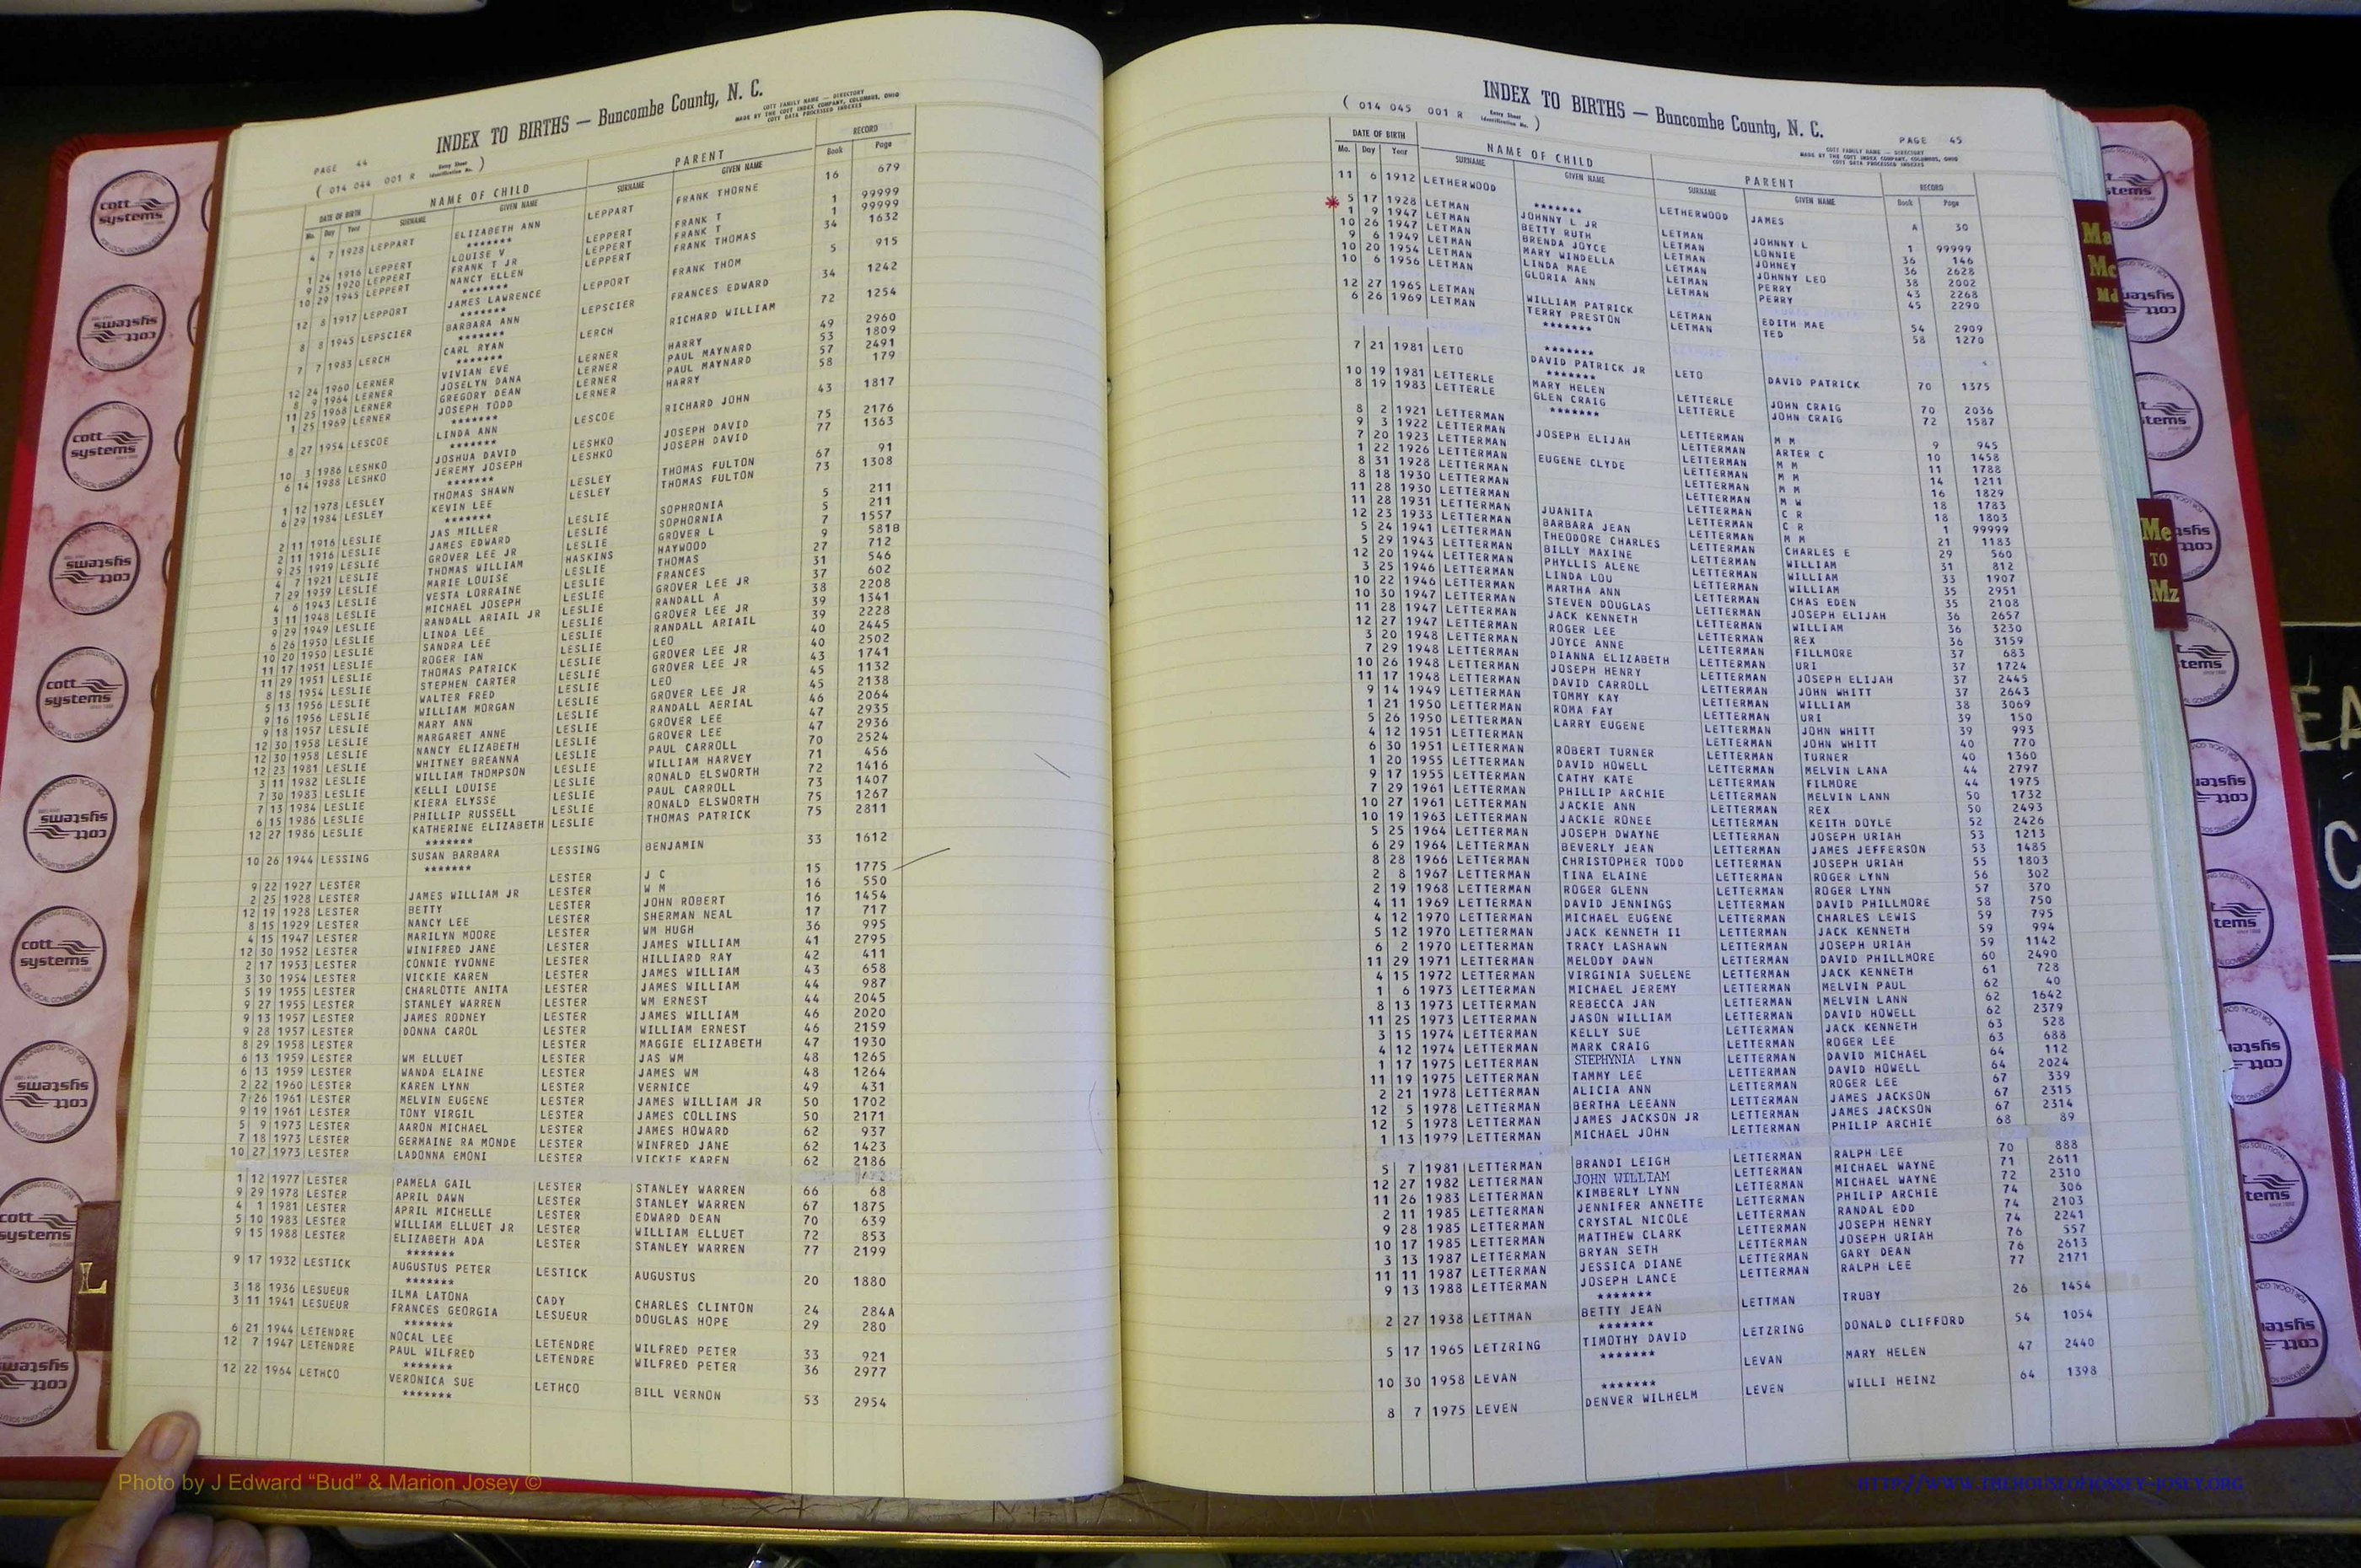 INDEX TO BIRTHS — Buncombe County, N. C.
COTT FAMILY NAME — DIRECTORY
MADE BY THE COTT INDEX COMPANY, COLUMBUS, OHIO
COTT DATA PROCESSED INDEXES
PAGE 44
( 014 044 001 R Entry Sheet Identification No. )
DATE OF BIRTH NAME OF CHILD PARENT RECORD
Mo. Day Year SURNAME GIVEN NAME SURNAME GIVEN NAME Book Page
4 7 1928 LEPPART ELIZABETH ANN LEPPART FRANK THORNE 16 679
*******
1 24 1916 LEPPERT LOUISE V LEPPERT FRANK T 1 99999
9 25 1920 LEPPERT FRANK T JR LEPPERT FRANK T 1 99999
10 29 1945 LEPPERT NANCY ELLEN LEPPERT FRANK THOMAS 34 1632
*******
12 8 1917 LEPPORT JAMES LAWRENCE LEPPORT FRANK THOM 5 915
*******
8 8 1945 LEPSCIER BARBARA ANN LEPSCIER FRANCES EDWARD 34 1242
******
7 7 1983 LERCH CARL RYAN LERCH RICHARD WILLIAM 72 1254
*******
12 24 1960 LERNER VIVIAN EVE LERNER HARRY 49 2960
8 9 1964 LERNER JOSELYN DANA LERNER PAUL MAYNARD 53 1809
11 25 1968 LERNER GREGORY DEAN LERNER PAUL MAYNARD 57 2491
1 25 1969 LERNER JOSEPH TODD LERNER HARRY 58 179
*******
8 27 1954 LESCOE LINDA ANN LESCOE RICHARD JOHN 43 1817
*******
10 3 1986 LESHKO JOSHUA DAVID LESHKO JOSEPH DAVID 75 2176
6 14 1988 LESHKO JEREMY JOSEPH LESHKO JOSEPH DAVID 77 1363
*******
1 12 1978 LESLEY THOMAS SHAWN LESLEY THOMAS FULTON 67 91
6 29 1984 LESLEY KEVIN LEE LESLEY THOMAS FULTON 73 1308
*******
2 11 1916 LESLIE JAS MILLER LESLIE SOPHRONIA 5 211
2 11 1916 LESLIE JAMES EDWARD LESLIE SOPHORNIA 5 211
9 25 1919 LESLIE GROVER LEE JR LESLIE GROVER L 7 1557
4 7 1921 LESLIE THOMAS WILLIAM HASKINS HAYWOOD 9 581B
7 29 1939 LESLIE MARIE LOUISE LESLIE THOMAS 27 712
4 6 1943 LESLIE VESTA LORRAINE LESLIE FRANCES 31 546
3 11 1948 LESLIE MICHAEL JOSEPH LESLIE GROVER LEE JR 37 602
9 29 1949 LESLIE RANDALL ARIAIL JR LESLIE RANDALL A 38 2208
6 26 1950 LESLIE LINDA LEE LESLIE GROVER LEE JR 39 1341
10 20 1950 LESLIE SANDRA LEE LESLIE RANDALL ARIAIL 39 2228
11 17 1951 LESLIE ROGER IAN LESLIE LEO 40 2445
11 29 1951 LESLIE THOMAS PATRICK LESLIE GROVER LEE JR 40 2502
8 18 1954 LESLIE STEPHEN CARTER LESLIE GROVER LEE JR 43 1741
5 13 1956 LESLIE WALTER FRED LESLIE LEO 45 1132
9 16 1956 LESLIE WILLIAM MORGAN LESLIE GROVER LEE JR 45 2138
9 18 1957 LESLIE MARY ANN LESLIE RANDALL AERIAL 46 2064
12 30 1958 LESLIE MARGARET ANNE LESLIE GROVER LEE 47 2935
12 30 1958 LESLIE NANCY ELIZABETH LESLIE GROVER LEE 47 2936
12 23 1981 LESLIE WHITNEY BREANNA LESLIE PAUL CARROLL 70 2524
3 11 1982 LESLIE WILLIAM THOMPSON LESLIE WILLIAM HARVEY 71 456
7 30 1983 LESLIE KELLI LOUISE LESLIE RONALD ELSWORTH 72 1416
7 13 1984 LESLIE KIERA ELYSSE LESLIE PAUL CARROLL 73 1407
6 15 1986 LESLIE PHILLIP RUSSELL LESLIE RONALD ELSWORTH 75 1267
12 27 1986 LESLIE KATHERINE ELIZABETH LESLIE THOMAS PATRICK 75 2811
*******
10 26 1944 LESSING SUSAN BARBARA LESSING BENJAMIN 33 1612
*******
9 22 1927 LESTER LESTER J C 15 1775
2 25 1928 LESTER JAMES WILLIAM JR LESTER W M 16 550
12 19 1928 LESTER BETTY LESTER JOHN ROBERT 16 1454
8 15 1929 LESTER NANCY LEE LESTER SHERMAN NEAL 17 717
4 15 1947 LESTER MARILYN MOORE LESTER WM HUGH 36 995
12 30 1952 LESTER WINIFRED JANE LESTER JAMES WILLIAM 41 2795
2 17 1953 LESTER CONNIE YVONNE LESTER HILLIARD RAY 42 411
3 30 1954 LESTER VICKIE KAREN LESTER JAMES WILLIAM 43 658
5 19 1955 LESTER CHARLOTTE ANITA LESTER JAMES WILLIAM 44 987
9 27 1955 LESTER STANLEY WARREN LESTER WM ERNEST 44 2045
9 13 1957 LESTER JAMES RODNEY LESTER JAMES WILLIAM 46 2020
9 28 1957 LESTER DONNA CAROL LESTER WILLIAM ERNEST 46 2159
8 29 1958 LESTER LESTER MAGGIE ELIZABETH 47 1930
6 13 1959 LESTER WM ELLUET LESTER JAS WM 48 1265
6 13 1959 LESTER WANDA ELAINE LESTER JAMES WM 48 1264
2 22 1960 LESTER KAREN LYNN LESTER VERNICE 49 431
7 26 1961 LESTER MELVIN EUGENE LESTER JAMES WILLIAM JR 50 1702
9 19 1961 LESTER TONY VIRGIL LESTER JAMES COLLINS 50 2171
5 9 1973 LESTER AARON MICHAEL LESTER JAMES HOWARD 62 937
7 18 1973 LESTER GERMAINE RA MONDE LESTER WINFRED JANE 62 1423
10 27 1973 LESTER LADONNA EMONI LESTER VICKIE KAREN 62 2186
1 12 1977 LESTER PAMELA GAIL LESTER STANLEY WARREN 66 68
9 29 1978 LESTER APRIL DAWN LESTER STANLEY WARREN 67 1875
4 1 1981 LESTER APRIL MICHELLE LESTER EDWARD DEAN 70 639
5 10 1983 LESTER WILLIAM ELLUET JR LESTER WILLIAM ELLUET 72 853
9 15 1988 LESTER ELIZABETH ADA LESTER STANLEY WARREN 77 2199
*******
9 17 1932 LESTICK AUGUSTUS PETER LESTICK AUGUSTUS 20 1880
*******
3 18 1936 LESUEUR ILMA LATONA CADY CHARLES CLINTON 24 284A
3 11 1941 LESUEUR FRANCES GEORGIA LESUEUR DOUGLAS HOPE 29 280
*******
6 21 1944 LETENDRE NOCAL LEE LETENDRE WILFRED PETER 33 921
12 7 1947 LETENDRE PAUL WILFRED LETENDRE WILFRED PETER 36 2977
*******
12 22 1964 LETHCO VERONICA SUE LETHCO BILL VERNON 53 2954
*******
INDEX TO BIRTHS — Buncombe County, N. C.
( 014 045 001 R Entry Sheet Identification No. )
PAGE 45
COTT FAMILY NAME — DIRECTORY
MADE BY THE COTT INDEX COMPANY, COLUMBUS, OHIO
COTT DATA PROCESSED INDEXES
DATE OF BIRTH NAME OF CHILD PARENT RECORD
Mo. Day Year SURNAME GIVEN NAME SURNAME GIVEN NAME Book Page
11 6 1912 LETHERWOOD LETHERWOOD JAMES A 30
*******
5 17 1928 LETMAN JOHNNY L JR LETMAN JOHNNY L 1 99999
1 9 1947 LETMAN BETTY RUTH LETMAN LONNIE 36 146
10 26 1947 LETMAN BRENDA JOYCE LETMAN JOHNEY 36 2628
9 6 1949 LETMAN MARY WINDELLA LETMAN JOHNNY LEO 38 2002
10 20 1954 LETMAN LINDA MAE LETMAN PERRY 43 2268
10 6 1956 LETMAN GLORIA ANN LETMAN PERRY 45 2290
12 27 1965 LETMAN WILLIAM PATRICK LETMAN EDITH MAE 54 2909
6 26 1969 LETMAN TERRY PRESTON LETMAN TED 58 1270
*******
*******
7 21 1981 LETO DAVID PATRICK JR LETO DAVID PATRICK 70 1375
*******
10 19 1981 LETTERLE MARY HELEN LETTERLE JOHN CRAIG 70 2036
8 19 1983 LETTERLE GLEN CRAIG LETTERLE JOHN CRAIG 72 1587
*******
8 2 1921 LETTERMAN LETTERMAN M M 9 945
9 3 1922 LETTERMAN JOSEPH ELIJAH LETTERMAN ARTER C 10 1458
7 20 1923 LETTERMAN LETTERMAN M M 11 1788
1 22 1926 LETTERMAN EUGENE CLYDE LETTERMAN M M 14 1211
8 31 1928 LETTERMAN LETTERMAN M M 16 1829
8 18 1930 LETTERMAN LETTERMAN M W 18 1783
11 28 1930 LETTERMAN LETTERMAN C R 18 1803
11 28 1931 LETTERMAN JUANITA LETTERMAN C R 1 99999
12 23 1933 LETTERMAN BARBARA JEAN LETTERMAN M M 21 1183
5 24 1941 LETTERMAN THEODORE CHARLES LETTERMAN CHARLES E 29 560
5 29 1943 LETTERMAN BILLY MAXINE LETTERMAN WILLIAM 31 812
12 20 1944 LETTERMAN PHYLLIS ALENE LETTERMAN WILLIAM 33 1907
3 25 1946 LETTERMAN LINDA LOU LETTERMAN WILLIAM 35 2951
10 22 1946 LETTERMAN MARTHA ANN LETTERMAN CHAS EDEN 35 2108
10 30 1947 LETTERMAN STEVEN DOUGLAS LETTERMAN JOSEPH ELIJAH 36 2657
11 28 1947 LETTERMAN JACK KENNETH LETTERMAN WILLIAM 36 3230
12 27 1947 LETTERMAN ROGER LEE LETTERMAN REX 36 3159
3 20 1948 LETTERMAN JOYCE ANNE LETTERMAN FILLMORE 37 683
7 29 1948 LETTERMAN DIANNA ELIZABETH LETTERMAN URI 37 1724
10 26 1948 LETTERMAN JOSEPH HENRY LETTERMAN JOSEPH ELIJAH 37 2445
11 17 1948 LETTERMAN DAVID CARROLL LETTERMAN JOHN WHITT 37 2643
9 14 1949 LETTERMAN TOMMY KAY LETTERMAN WILLIAM 38 3069
1 21 1950 LETTERMAN ROMA FAY LETTERMAN URI 39 150
5 26 1950 LETTERMAN LARRY EUGENE LETTERMAN JOHN WHITT 39 993
4 12 1951 LETTERMAN LETTERMAN JOHN WHITT 40 770
6 30 1951 LETTERMAN ROBERT TURNER LETTERMAN TURNER 40 1360
1 20 1955 LETTERMAN DAVID HOWELL LETTERMAN MELVIN LANA 44 2797
9 17 1955 LETTERMAN CATHY KATE LETTERMAN FILMORE 44 1975
7 29 1961 LETTERMAN PHILLIP ARCHIE LETTERMAN MELVIN LANN 50 1732
10 27 1961 LETTERMAN JACKIE ANN LETTERMAN REX 50 2493
10 19 1963 LETTERMAN JACKIE RONEE LETTERMAN KEITH DOYLE 52 2426
5 25 1964 LETTERMAN JOSEPH DWAYNE LETTERMAN JOSEPH URIAH 53 1213
6 29 1964 LETTERMAN BEVERLY JEAN LETTERMAN JAMES JEFFERSON 53 1485
8 28 1966 LETTERMAN CHRISTOPHER TODD LETTERMAN JOSEPH URIAH 55 1803
2 8 1967 LETTERMAN TINA ELAINE LETTERMAN ROGER LYNN 56 302
2 19 1968 LETTERMAN ROGER GLENN LETTERMAN ROGER LYNN 57 370
4 11 1969 LETTERMAN DAVID JENNINGS LETTERMAN DAVID PHILLMORE 58 750
4 12 1970 LETTERMAN MICHAEL EUGENE LETTERMAN CHARLES LEWIS 59 795
5 12 1970 LETTERMAN JACK KENNETH II LETTERMAN JACK KENNETH 59 994
6 2 1970 LETTERMAN TRACY LASHAWN LETTERMAN JOSEPH URIAH 59 1142
11 29 1971 LETTERMAN MELODY DAWN LETTERMAN DAVID PHILLMORE 60 2490
4 15 1972 LETTERMAN VIRGINIA SUELENE LETTERMAN JACK KENNETH 61 728
1 6 1973 LETTERMAN MICHAEL JEREMY LETTERMAN MELVIN PAUL 62 40
8 13 1973 LETTERMAN REBECCA JAN LETTERMAN MELVIN LANN 62 1642
11 25 1973 LETTERMAN JASON WILLIAM LETTERMAN DAVID HOWELL 62 2379
3 15 1974 LETTERMAN KELLY SUE LETTERMAN JACK KENNETH 63 528
4 12 1974 LETTERMAN MARK CRAIG LETTERMAN ROGER LEE 63 688
1 17 1975 LETTERMAN STEPHYNIA LYNN LETTERMAN DAVID MICHAEL 64 112
11 19 1975 LETTERMAN TAMMY LEE LETTERMAN DAVID HOWELL 64 2024
2 21 1978 LETTERMAN ALICIA ANN LETTERMAN ROGER LEE 67 339
12 5 1978 LETTERMAN BERTHA LEEANN LETTERMAN JAMES JACKSON 67 2315
12 5 1978 LETTERMAN JAMES JACKSON JR LETTERMAN JAMES JACKSON 67 2314
1 13 1979 LETTERMAN MICHAEL JOHN LETTERMAN PHILIP ARCHIE 68 89
5 7 1981 LETTERMAN BRANDI LEIGH LETTERMAN RALPH LEE 70 888
12 27 1982 LETTERMAN JOHN WILLIAM LETTERMAN MICHAEL WAYNE 71 2611
11 26 1983 LETTERMAN KIMBERLY LYNN LETTERMAN MICHAEL WAYNE 72 2310
2 11 1985 LETTERMAN JENNIFER ANNETTE LETTERMAN PHILIP ARCHIE 74 306
9 28 1985 LETTERMAN CRYSTAL NICOLE LETTERMAN RANDAL EDD 74 2103
10 17 1985 LETTERMAN MATTHEW CLARK LETTERMAN JOSEPH HENRY 74 2241
3 13 1987 LETTERMAN BRYAN SETH LETTERMAN JOSEPH URIAH 76 557
11 11 1987 LETTERMAN JESSICA DIANE LETTERMAN GARY DEAN 76 2613
9 13 1988 LETTERMAN JOSEPH LANCE LETTERMAN RALPH LEE 77 2171
*******
2 27 1938 LETTMAN BETTY JEAN LETTMAN TRUBY 26 1454
*******
5 17 1965 LETZRING TIMOTHY DAVID LETZRING DONALD CLIFFORD 54 1054
*******
10 30 1958 LEVAN LEVAN MARY HELEN 47 2440
*******
8 7 1975 LEVEN DENVER WILHELM LEVEN WILLI HEINZ 64 1398
L
Ma
Mc
Md
Me
TO
Mz
cott systems
Photo by J Edward “Bud” & Marion Josey ©
HTTP://WWW.THEHOUSEOFJOSSEY-JOSEY.ORG